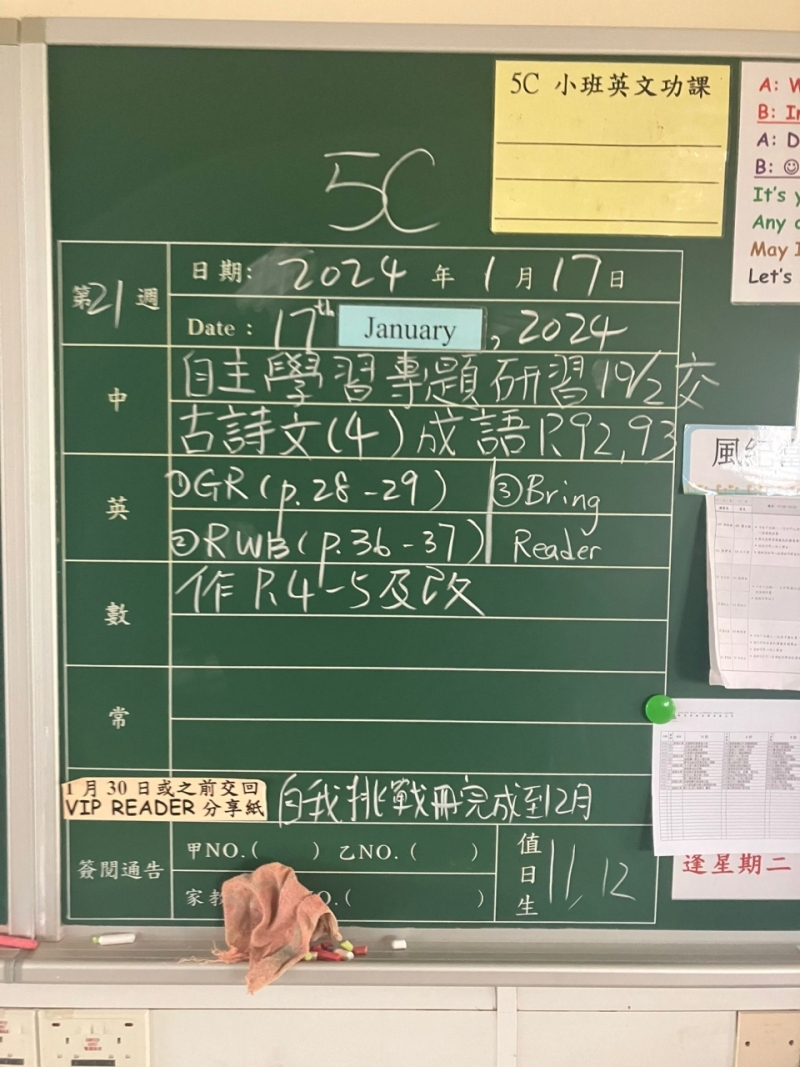 5C 小班英文功課
5C
A: W
B: In
A: D
B: ☺
It's y
Any
May I
Let's
第21週
日期: 2024 年 1 月 17 日
Date : 17th January, 2024
中
自主學習專題研習19/2交
古詩文(4)成語P.92,93
英
①GR(p.28-29)
②RWB(p.36-37)
③Bring
Reader
數
作P.4-5及改
常
1月30日或之前交回
VIP READER 分享紙
自我挑戰冊完成至12月
簽閱通告
甲NO.( ) 乙NO.( )
家教 O.( )
值日生
11, 12
風紀
逢星期二